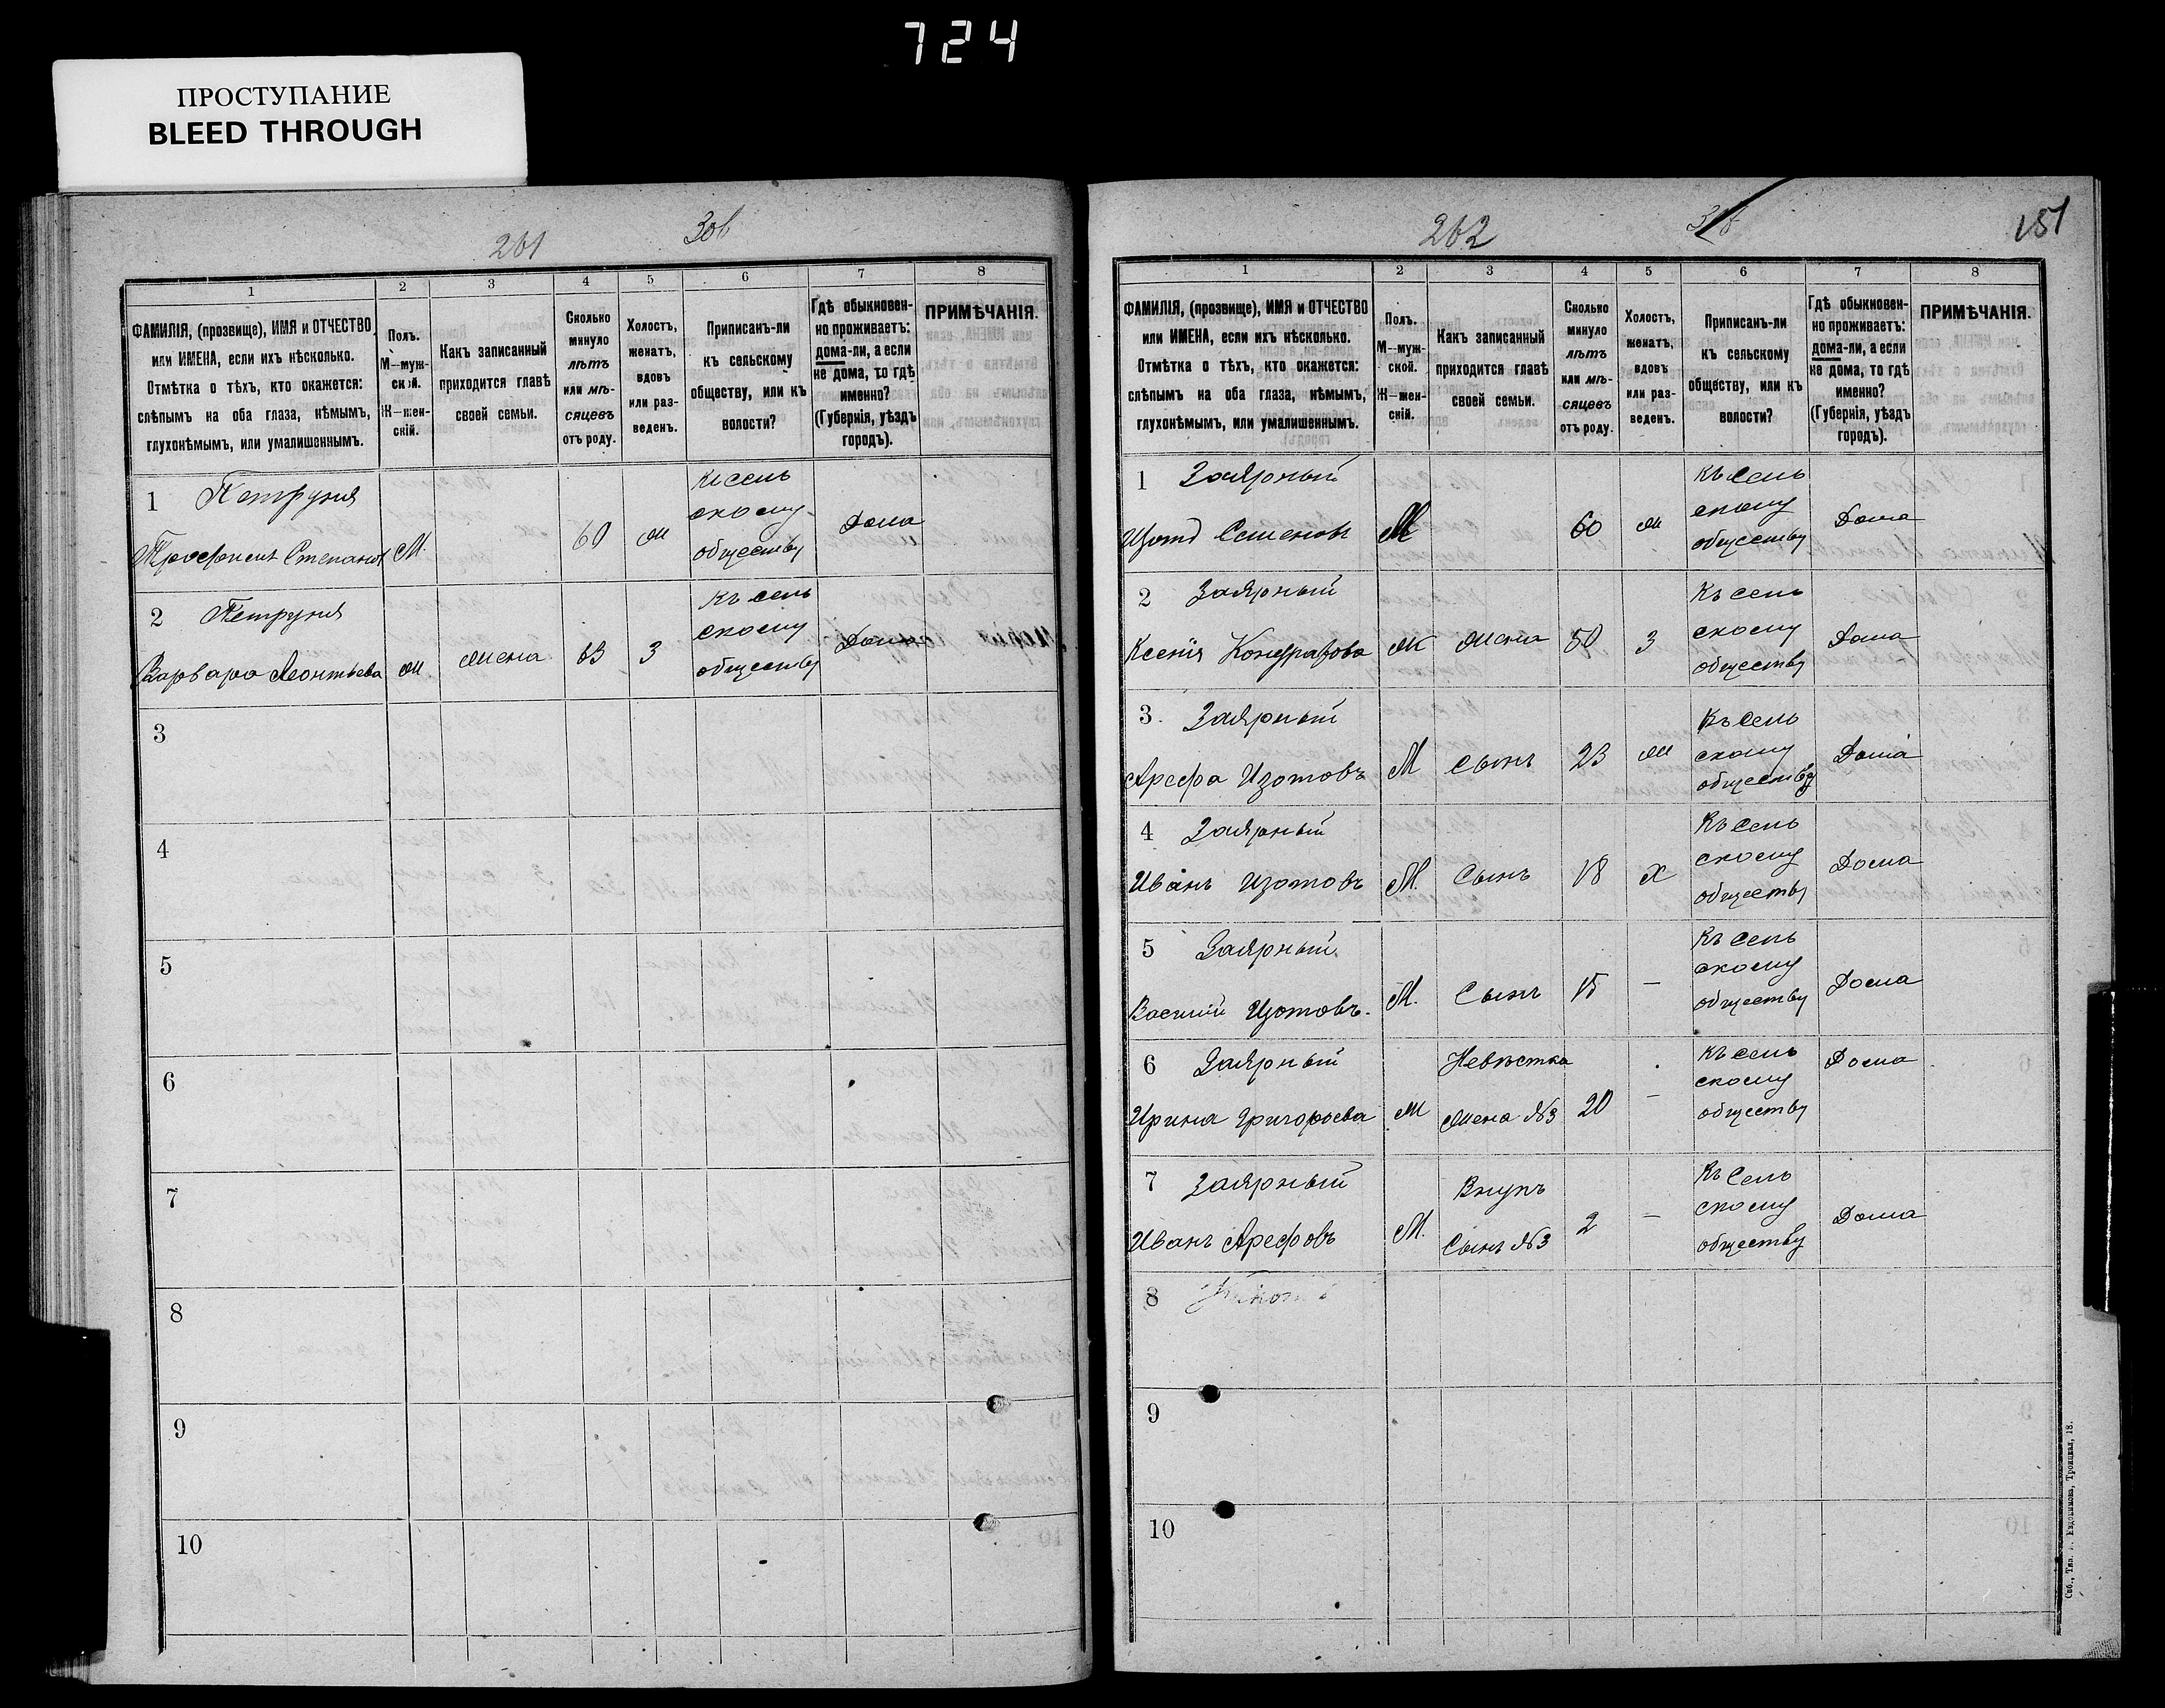 724
ПРОСТУПАНИЕ
BLEED THROUGH
261
262
151
1 2 3 4 5 6 7 8
ФАМИЛІЯ, (прозвище), ИМЯ и ОТЧЕСТВО
или ИМЕНА, если ихъ нѣсколько.
Отмѣтка о тѣхъ, кто окажется:
слѣпымъ на оба глаза, нѣмымъ,
глухонѣмымъ, или умалишеннымъ.
Полъ.
М—муж-
ской.
Ж—жен-
скій.
Какъ записанный
приходится главѣ
своей семьи.
Сколько
минуло
лѣтъ
или мѣ-
сяцевъ
отъ роду.
Холостъ,
женатъ,
вдовъ
или раз-
веденъ.
Приписанъ-ли
къ сельскому
обществу, или къ
волости?
Гдѣ обыкновен-
но проживаетъ:
дома-ли, а если
не дома, то гдѣ
именно?
(Губернія, уѣздъ
городъ).
ПРИМѢЧАНІЯ.
1 Петруня
Степановъ М. 60 ж
къ сель
скому
обществу
Дома
2 Петруня
Варвара Леонтьева ж. жена 63 З
Къ сель
скому
обществу
Дома
3
4
5
6
7
8
9
10
1 2 3 4 5 6 7 8
ФАМИЛІЯ, (прозвище), ИМЯ и ОТЧЕСТВО
или ИМЕНА, если ихъ нѣсколько.
Отмѣтка о тѣхъ, кто окажется:
слѣпымъ на оба глаза, нѣмымъ,
глухонѣмымъ, или умалишеннымъ.
Полъ.
М—муж-
ской.
Ж—жен-
скій.
Какъ записанный
приходится главѣ
своей семьи.
Сколько
минуло
лѣтъ
или мѣ-
сяцевъ
отъ роду.
Холостъ,
женатъ,
вдовъ
или раз-
веденъ.
Приписанъ-ли
къ сельскому
обществу, или къ
волости?
Гдѣ обыкновен-
но проживаетъ:
дома-ли, а если
не дома, то гдѣ
именно?
(Губернія, уѣздъ
городъ).
ПРИМѢЧАНІЯ.
1 Заярный
Изотъ Семеновъ М 60 ж
Къ сель
скому
обществу
Дома
2 Заярный
Ксенія Кондратова ж жена 50 З
Къ сель
скому
обществу
Дома
3. Заярный
Арефа Изотовъ М сынъ 23 ж
Къ сель
скому
обществу
Дома
4 Заярный
Иванъ Изотовъ М. Сынъ 18 х
Къ сель
скому
обществу
Дома
5 Заярный
Василій Изотовъ. М. Сынъ 15 —
Къ сель
скому
обществу
Дома
6 Заярный
Ирина Григорьева ж
Невѣстка
жена №3 20 —
Къ сель
скому
обществу
Дома
7 Заярный
Иванъ Арефовъ М.
Внукъ
Сынъ №3 2 —
Къ сель
скому
обществу
Дома
8
9
10